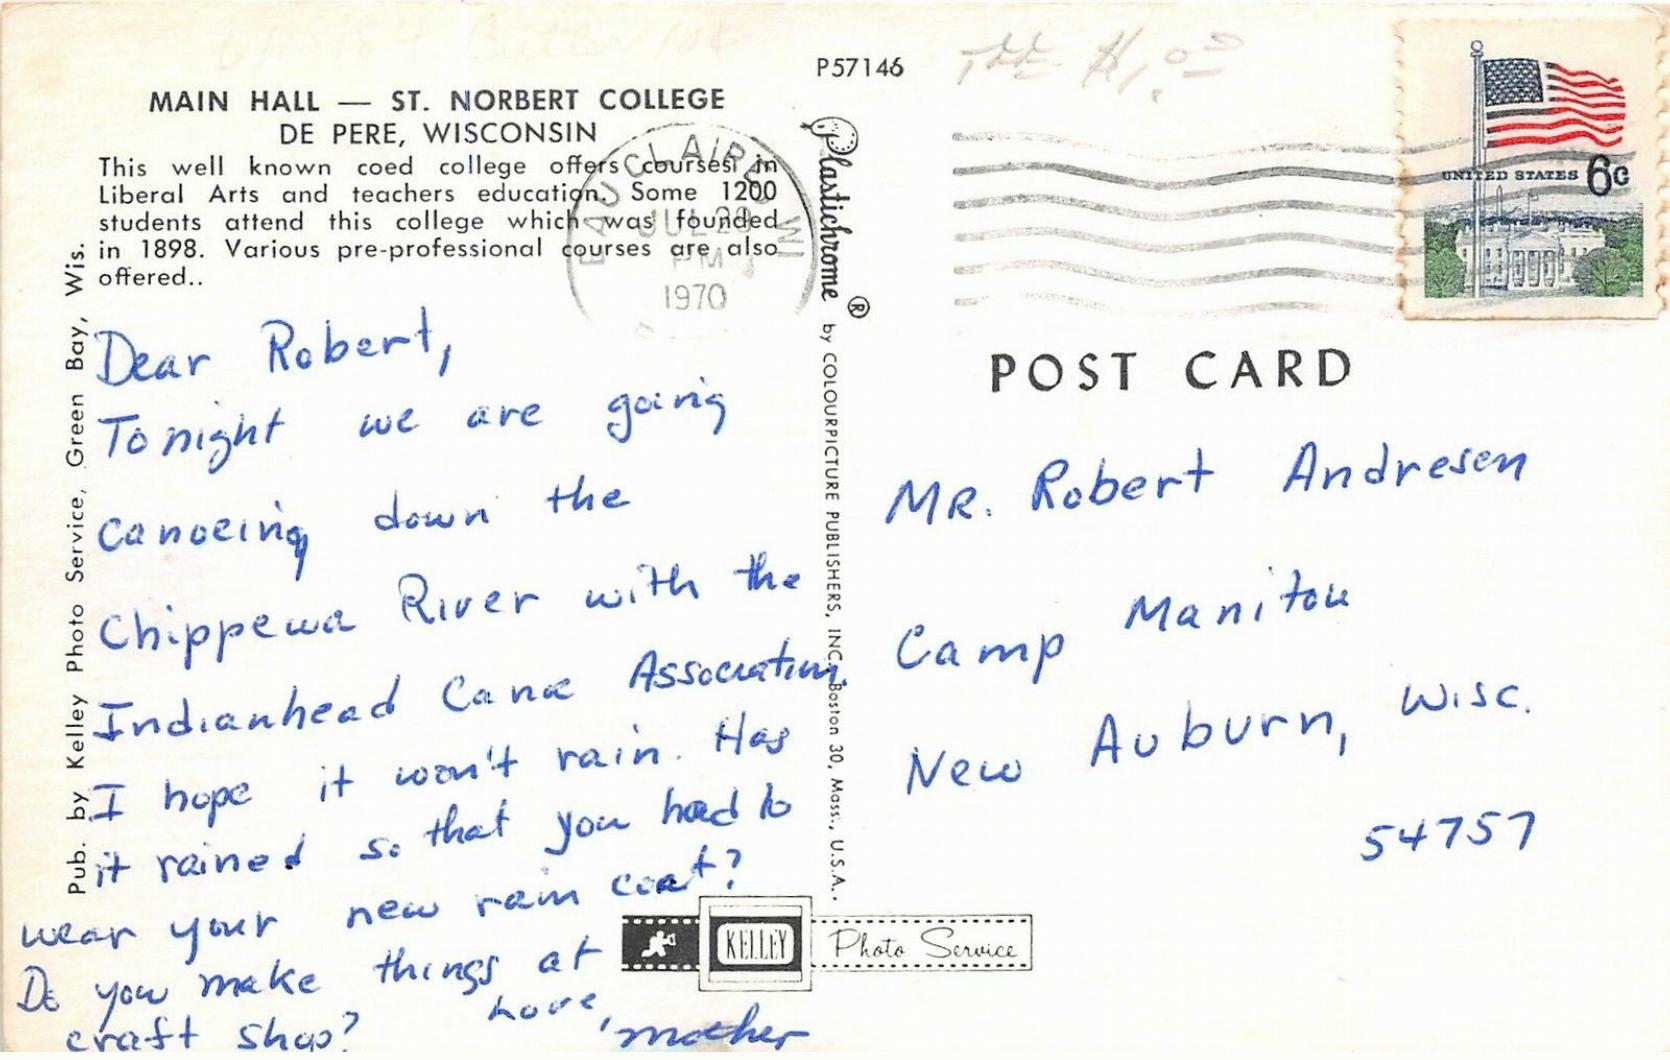 P57146
MAIN HALL — ST. NORBERT COLLEGE
DE PERE, WISCONSIN
This well known coed college offers courses in
Liberal Arts and teachers education. Some 1200
students attend this college which was founded
in 1898. Various pre-professional courses are also
offered..
EAU CLAIRE, WI
JUL 28
PM
1970
UNITED STATES 6c
Pub. by Kelley Photo Service, Green Bay, Wis.
Plastichrome ® by COLOURPICTURE PUBLISHERS, INC. Boston 30, Mass., U.S.A.
Dear Robert,
Tonight we are going
canoeing down the
Chippewa River with the
Indianhead Canoe Association.
I hope it won't rain. Has
it rained so that you had to
wear your new rain coat?
Do you make things at
craft shop?
Love,
mother
POST CARD
MR. Robert Andresen
Camp Manitou
New Auburn, Wisc.
54757
KELLEY Photo Service